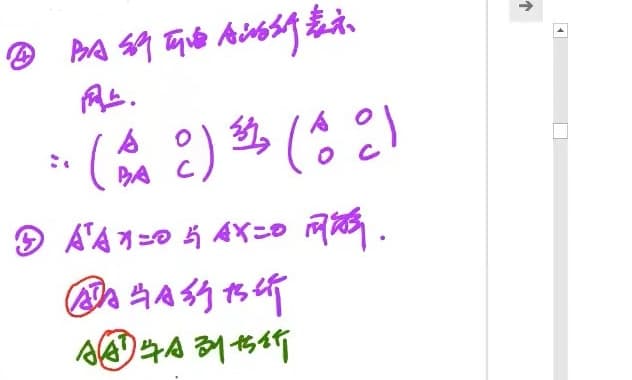 ④ BA的行可由A的行表示
同上.
∴ (A O BA C) 行→ (A O O C)
⑤ AᵀAx=0与AX=0同解.
AᵀA与A行等价
AAᵀ与A列等价